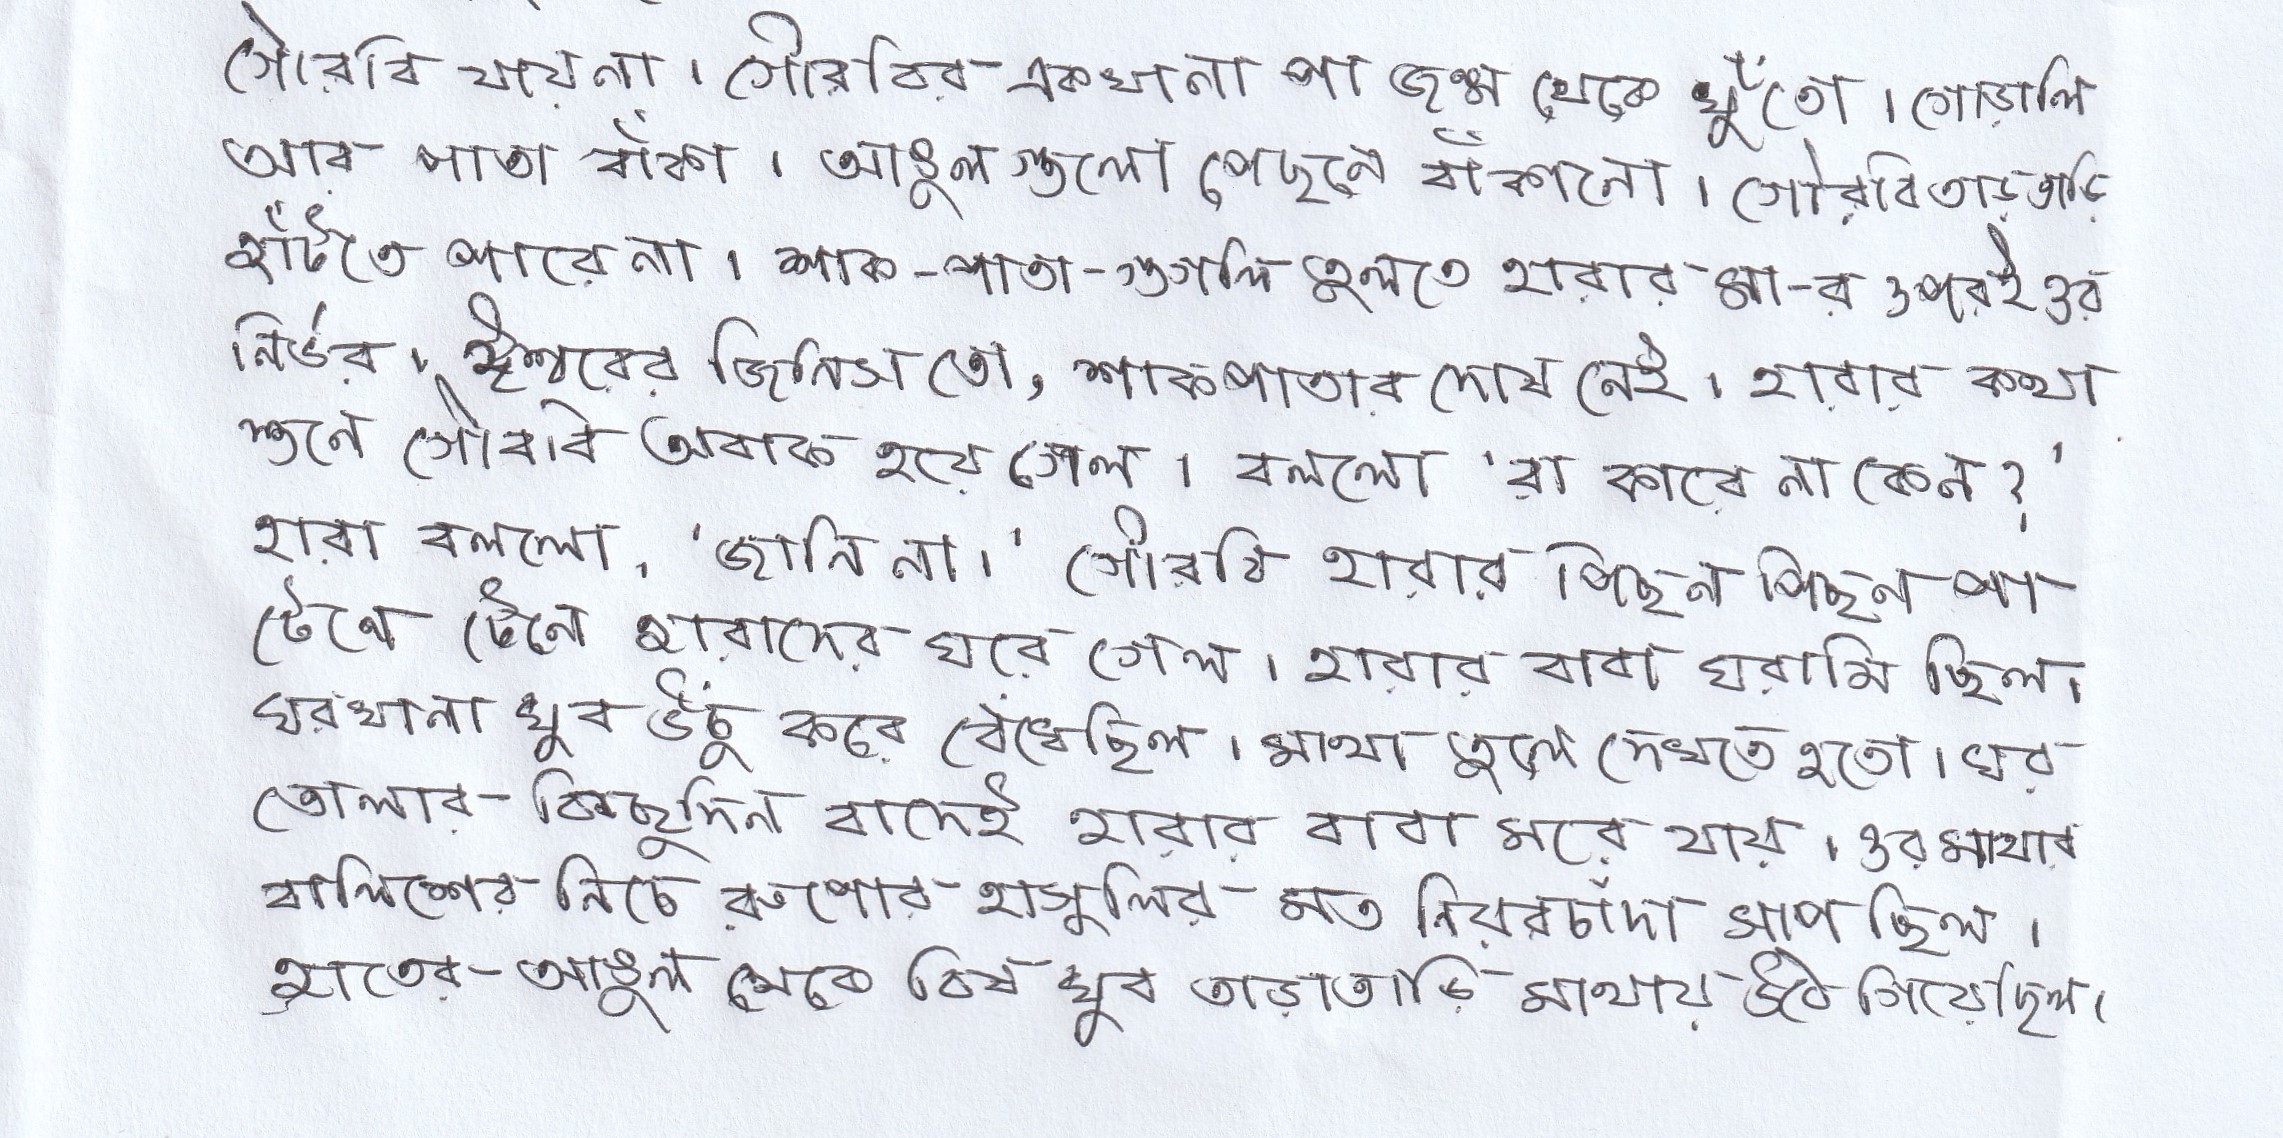 গৌরবি যায় না। গৌরবির একখানা পা জন্ম থেকে খুঁতো। গোড়ালি
আর পাতা বাঁকা। আঙুল গুলো পেছনে বাঁকানো। গৌরবি তাড়াতাড়ি
হাঁটতে পারে না। শাক-পাতা-গুগলি তুলতে হারার মা-র ওপরই ওর
নির্ভর। ঈশ্বরের জিনিস তো, শাকপাতার দোষ নেই। হারার কথা
শুনে গৌরবি অবাক হয়ে গেল। বললো 'রা কারে না কেন?'
হারা বললো, 'জানি না।' গৌরবি হারার পিছন পিছন পা
টেনে টেনে হারাদের ঘরে গেল। হারার বাবা ঘরামি ছিল।
ঘরখানা খুব উঁচু করে বেঁধেছিল। মাথা তুলে দেখতে হতো। ঘর
তোলার কিছুদিন বাদেই হারার বাবা মরে যায়। ওর মাথার
বালিশের নিচে রূপোর হাসুলির মত নিয়রচাঁদা সাপ ছিল।
হাতের আঙুল থেকে বিষ খুব তাড়াতাড়ি মাথায় উঠে গিয়েছিল।